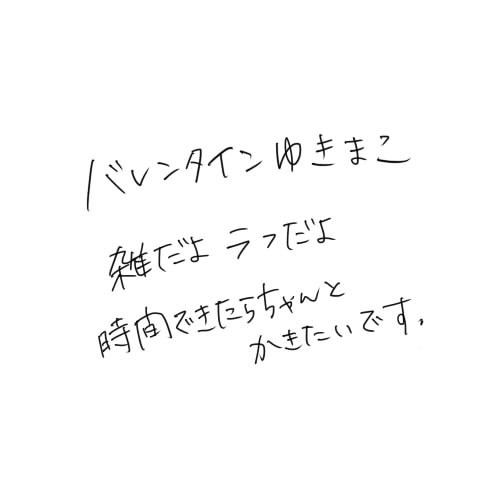 バレンタインゆきまこ
雑だよ ラフだよ
時間できたらちゃんと
かきたいです。